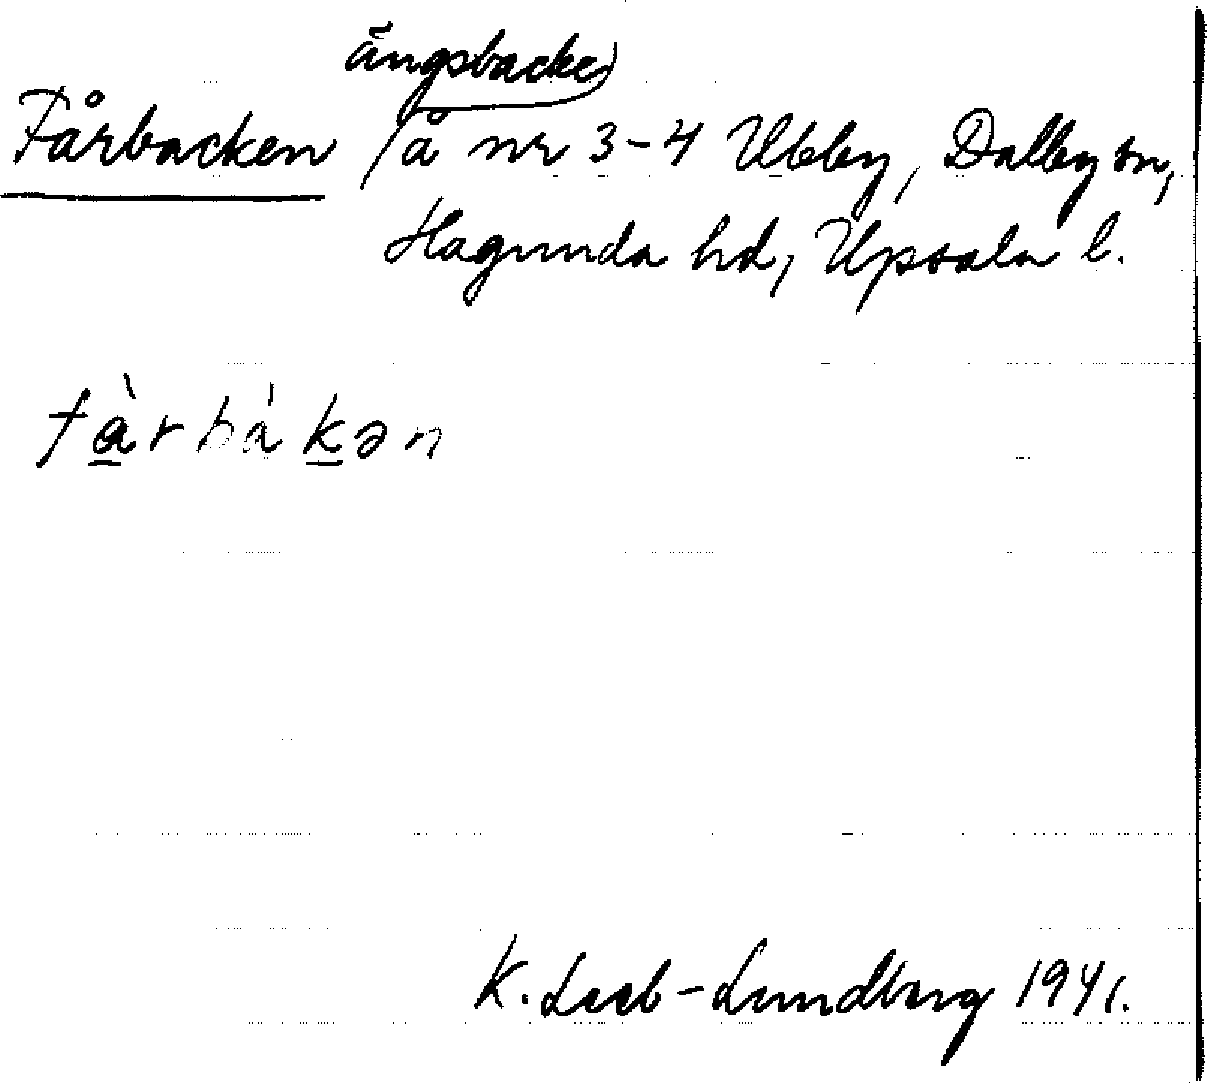 ängsbacke
Fårbacken å nr 3-4 Ubby, Dalby sn,
Hagunda hd, Uppsala l.
fàrbàkən
K. Leeb-Lundberg 1941.